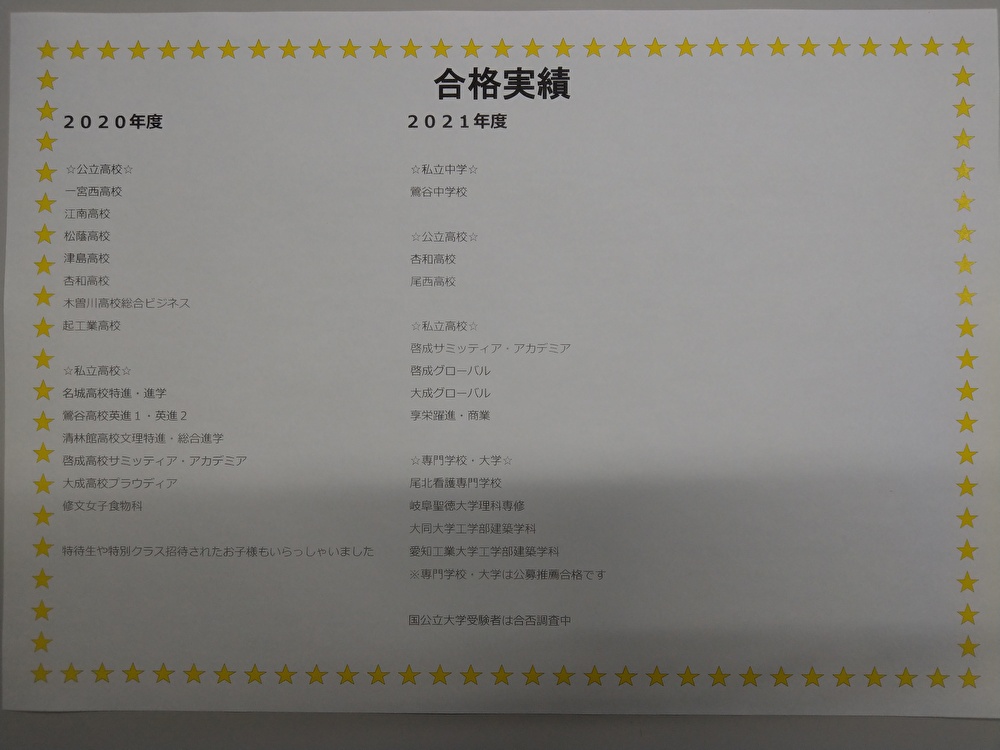 合格実績
２０２０年度
☆公立高校☆
一宮西高校
江南高校
松蔭高校
津島高校
杏和高校
木曽川高校総合ビジネス
起工業高校
☆私立高校☆
名城高校特進・進学
鶯谷高校英進１・英進２
清林館高校文理特進・総合進学
啓成高校サミッティア・アカデミア
大成高校プラウディア
修文女子食物科
特待生や特別クラス招待されたお子様もいらっしゃいました
２０２１年度
☆私立中学☆
鶯谷中学校
☆公立高校☆
杏和高校
尾西高校
☆私立高校☆
啓成サミッティア・アカデミア
啓成グローバル
大成グローバル
享栄躍進・商業
☆専門学校・大学☆
尾北看護専門学校
岐阜聖徳大学理科専修
大同大学工学部建築学科
愛知工業大学工学部建築学科
※専門学校・大学は公募推薦合格です
国公立大学受験者は合否調査中